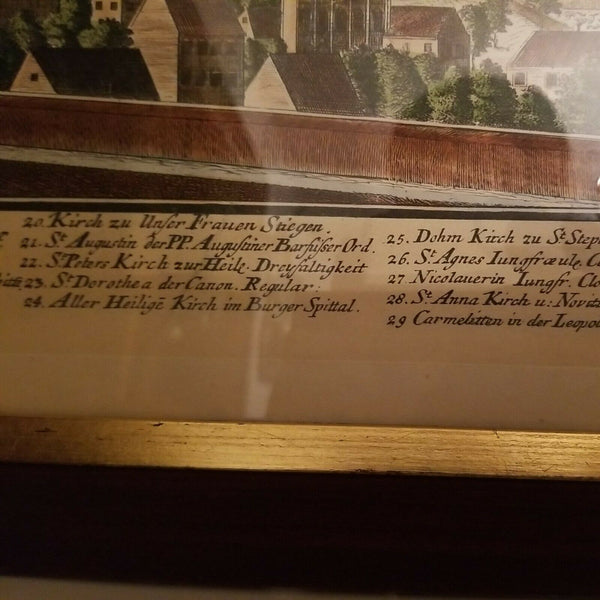 20. Kirch zu Unser Frauen Stiegen.
21. St. Augustin der PP. Augustiner Barfusser Ord.
22. St. Peters Kirch zur Heil. Dreyfaltigkeit
23. St. Dorothea der Canon. Regular:
24. Aller Heiligē Kirch im Burger Spittal.
25. Dohm Kirch zu St. Step
26. St. Agnes Iungfræule. C
27. Nicolauerin Iungfr. Clo
28. St. Anna Kirch u: Novitt
29 Carmelitten in der Leopo